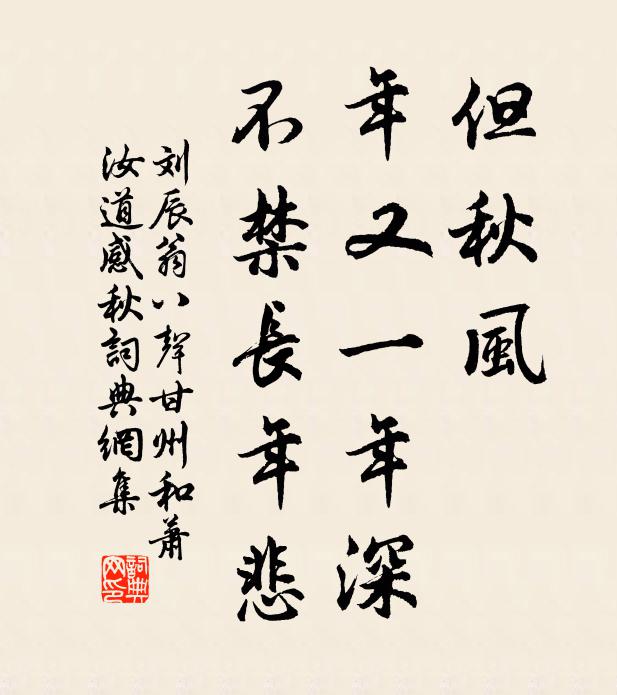 但秋風
年又一年年深
不禁長年悲
刘辰翁八聲甘州和蕭
汝道感秋詞典網集
詞典网印